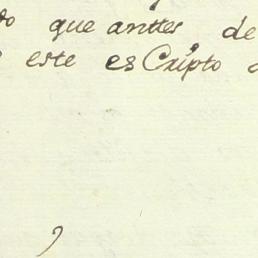 do que anttes de
este esCripto